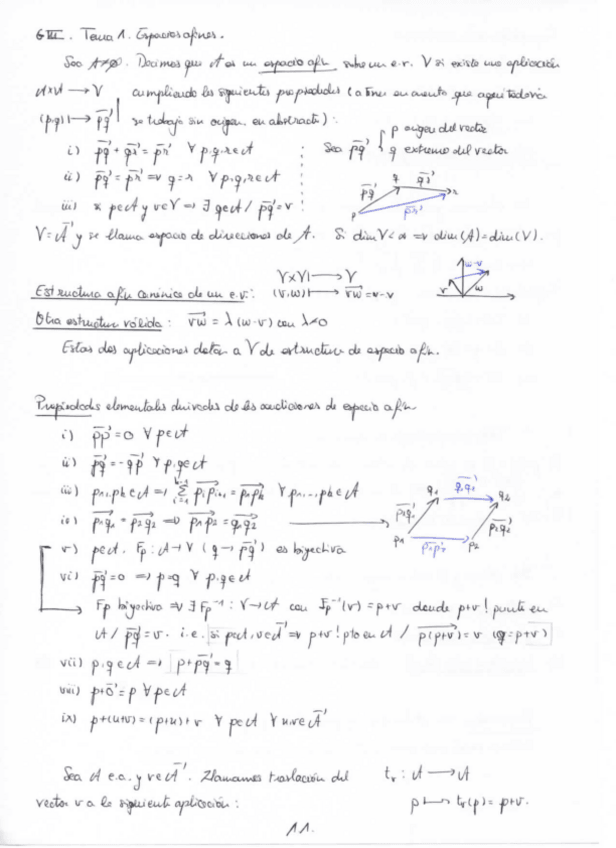 GIII. Tema 1. Espacios afines.
Sea A≠∅. Decimos que A es un espacio afín sobre un e.v. V si existe una aplicación
A×A → V cumpliendo las siguientes propiedades (a tener en cuenta que aquí todavía
(p,q) ↦ p͞q⃗ se trabaja sin origen, en abstracto):
i) p͞q⃗ + q͞r⃗ = p͞r⃗ ∀ p,q,r∈A
Sea p͞q⃗ { p origen del vector
q extremo del vector
ii) p͞q⃗ = p͞r⃗ ⇒ q=r ∀ p,q,r∈A
p͞q⃗ q͞r⃗
p q r
p͞r⃗
iii) x p∈A y v∈V ⇒ ∃ q∈A / p͞q⃗ = v
V=A⃗ y se llama espacio de direcciones de A. Si dim V<∞ ⇒ dim(A)=dim(V).
Estructura afín canónica de un e.v.: V×V → V
(v,w) ↦ v͞w⃗ = w-v
w-v
v w
Otra estructura válida: v͞w⃗ = λ(w-v) con λ≠0
Estas dos aplicaciones dotan a V de estructura de espacio afín.
Propiedades elementales derivadas de las condiciones de espacio afín
i) p͞p⃗ = 0 ∀ p∈A
ii) p͞q⃗ = -q͞p⃗ ∀ p,q∈A
iii) p₁,..,pk∈A ⇒ Σ_{i=1}^{k-1} pᵢpᵢ₊₁⃗ = p₁pk⃗ ∀ p₁,..,pk∈A
iv) p₁q₁⃗ = p₂q₂⃗ ⇒ p₁p₂⃗ = q₁q₂⃗ →
q₁ q₁q₂⃗ q₂
p₁q₁⃗ p₂q₂⃗
p₁ p₁p₂⃗ p₂
v) p∈A. Fp: A→V (q→p͞q⃗) es biyectiva
vi) p͞q⃗ = 0 ⇒ p=q ∀ p,q∈A
→ Fp biyectiva ⇒ ∃ Fp⁻¹: V→A con Fp⁻¹(v)=p+v donde p+v ! punto en
A / p͞q⃗ = v. i.e. si p∈A, v∈A⃗ ⇒ p+v ! pto en A / p(p+v)⃗ = v (q=p+v)
vii) p,q∈A ⇒ p+p͞q⃗ = q
viii) p+0⃗ = p ∀ p∈A
ix) p+(u+v)=(p+u)+v ∀ p∈A ∀ u,v∈A⃗
Sea A e.a. y v∈A⃗. Llamamos traslación del tᵥ: A → A
vector v a la siguiente aplicación: p ↦ tᵥ(p)=p+v.
11.